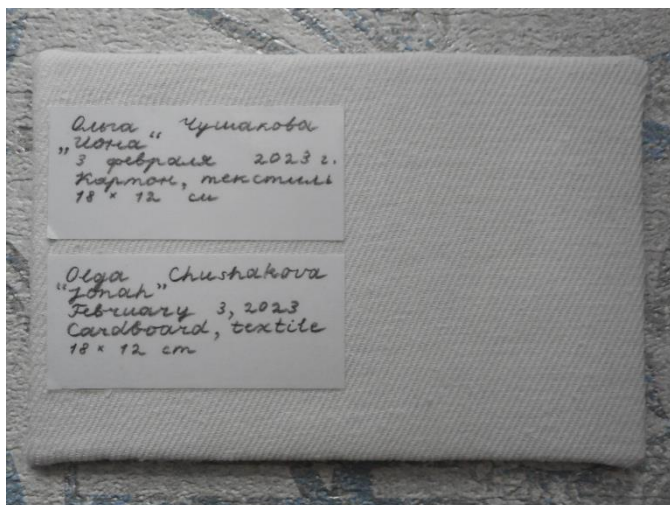 Ольга Чушакова
„Иона“
3 февраля 2023 г.
Картон, текстиль
18 × 12 см
Olga Chushakova
“Jonah”
February 3, 2023
Cardboard, textile
18 × 12 cm